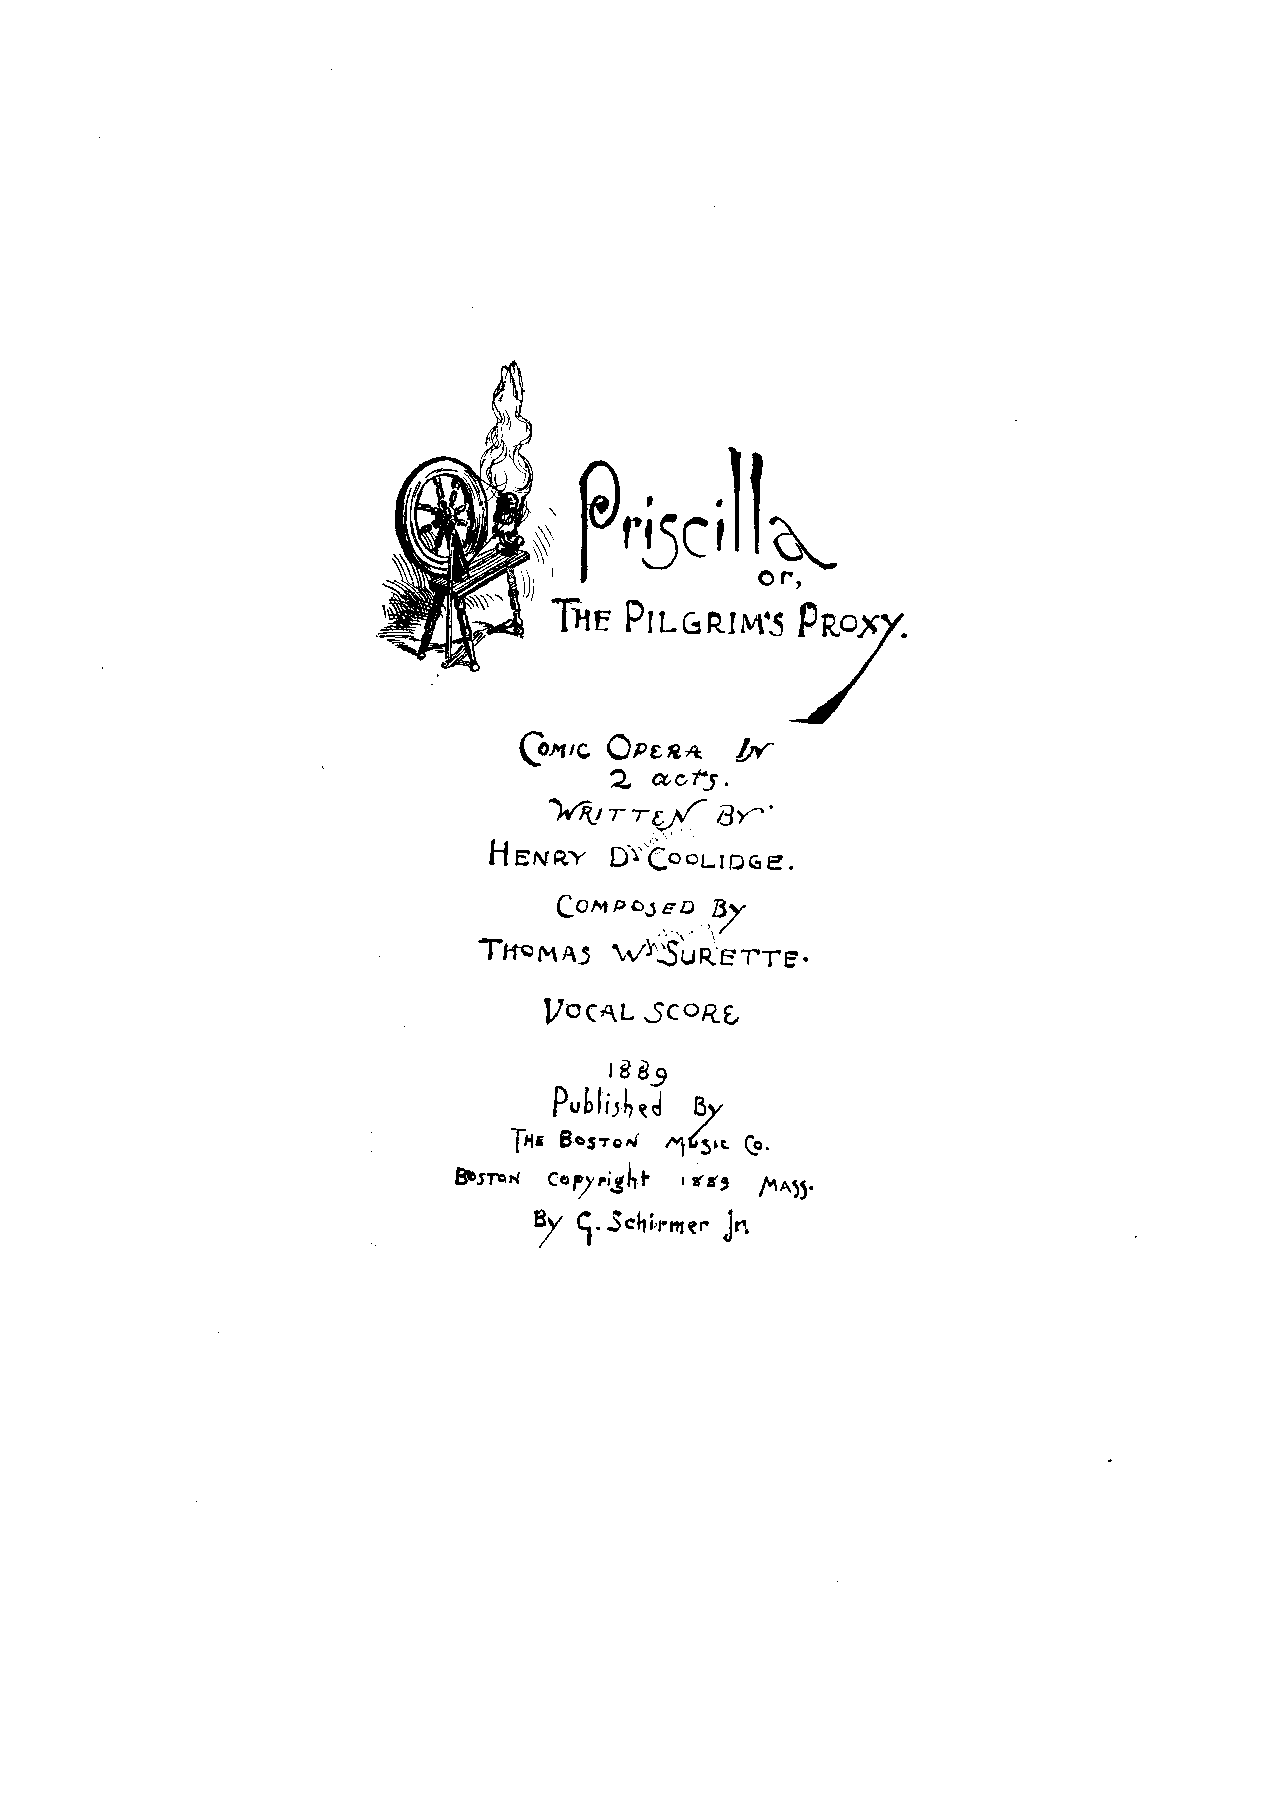 Priscilla
or,
THE PILGRIM'S PROXY.
COMIC OPERA IN
2 acts.
WRITTEN BY
HENRY D. COOLIDGE.
COMPOSED BY
THOMAS W. SURETTE.
VOCAL SCORE
1889
Published By
THE BOSTON MUSIC CO.
BOSTON Copyright 1889 MASS.
By G. Schirmer Jr.